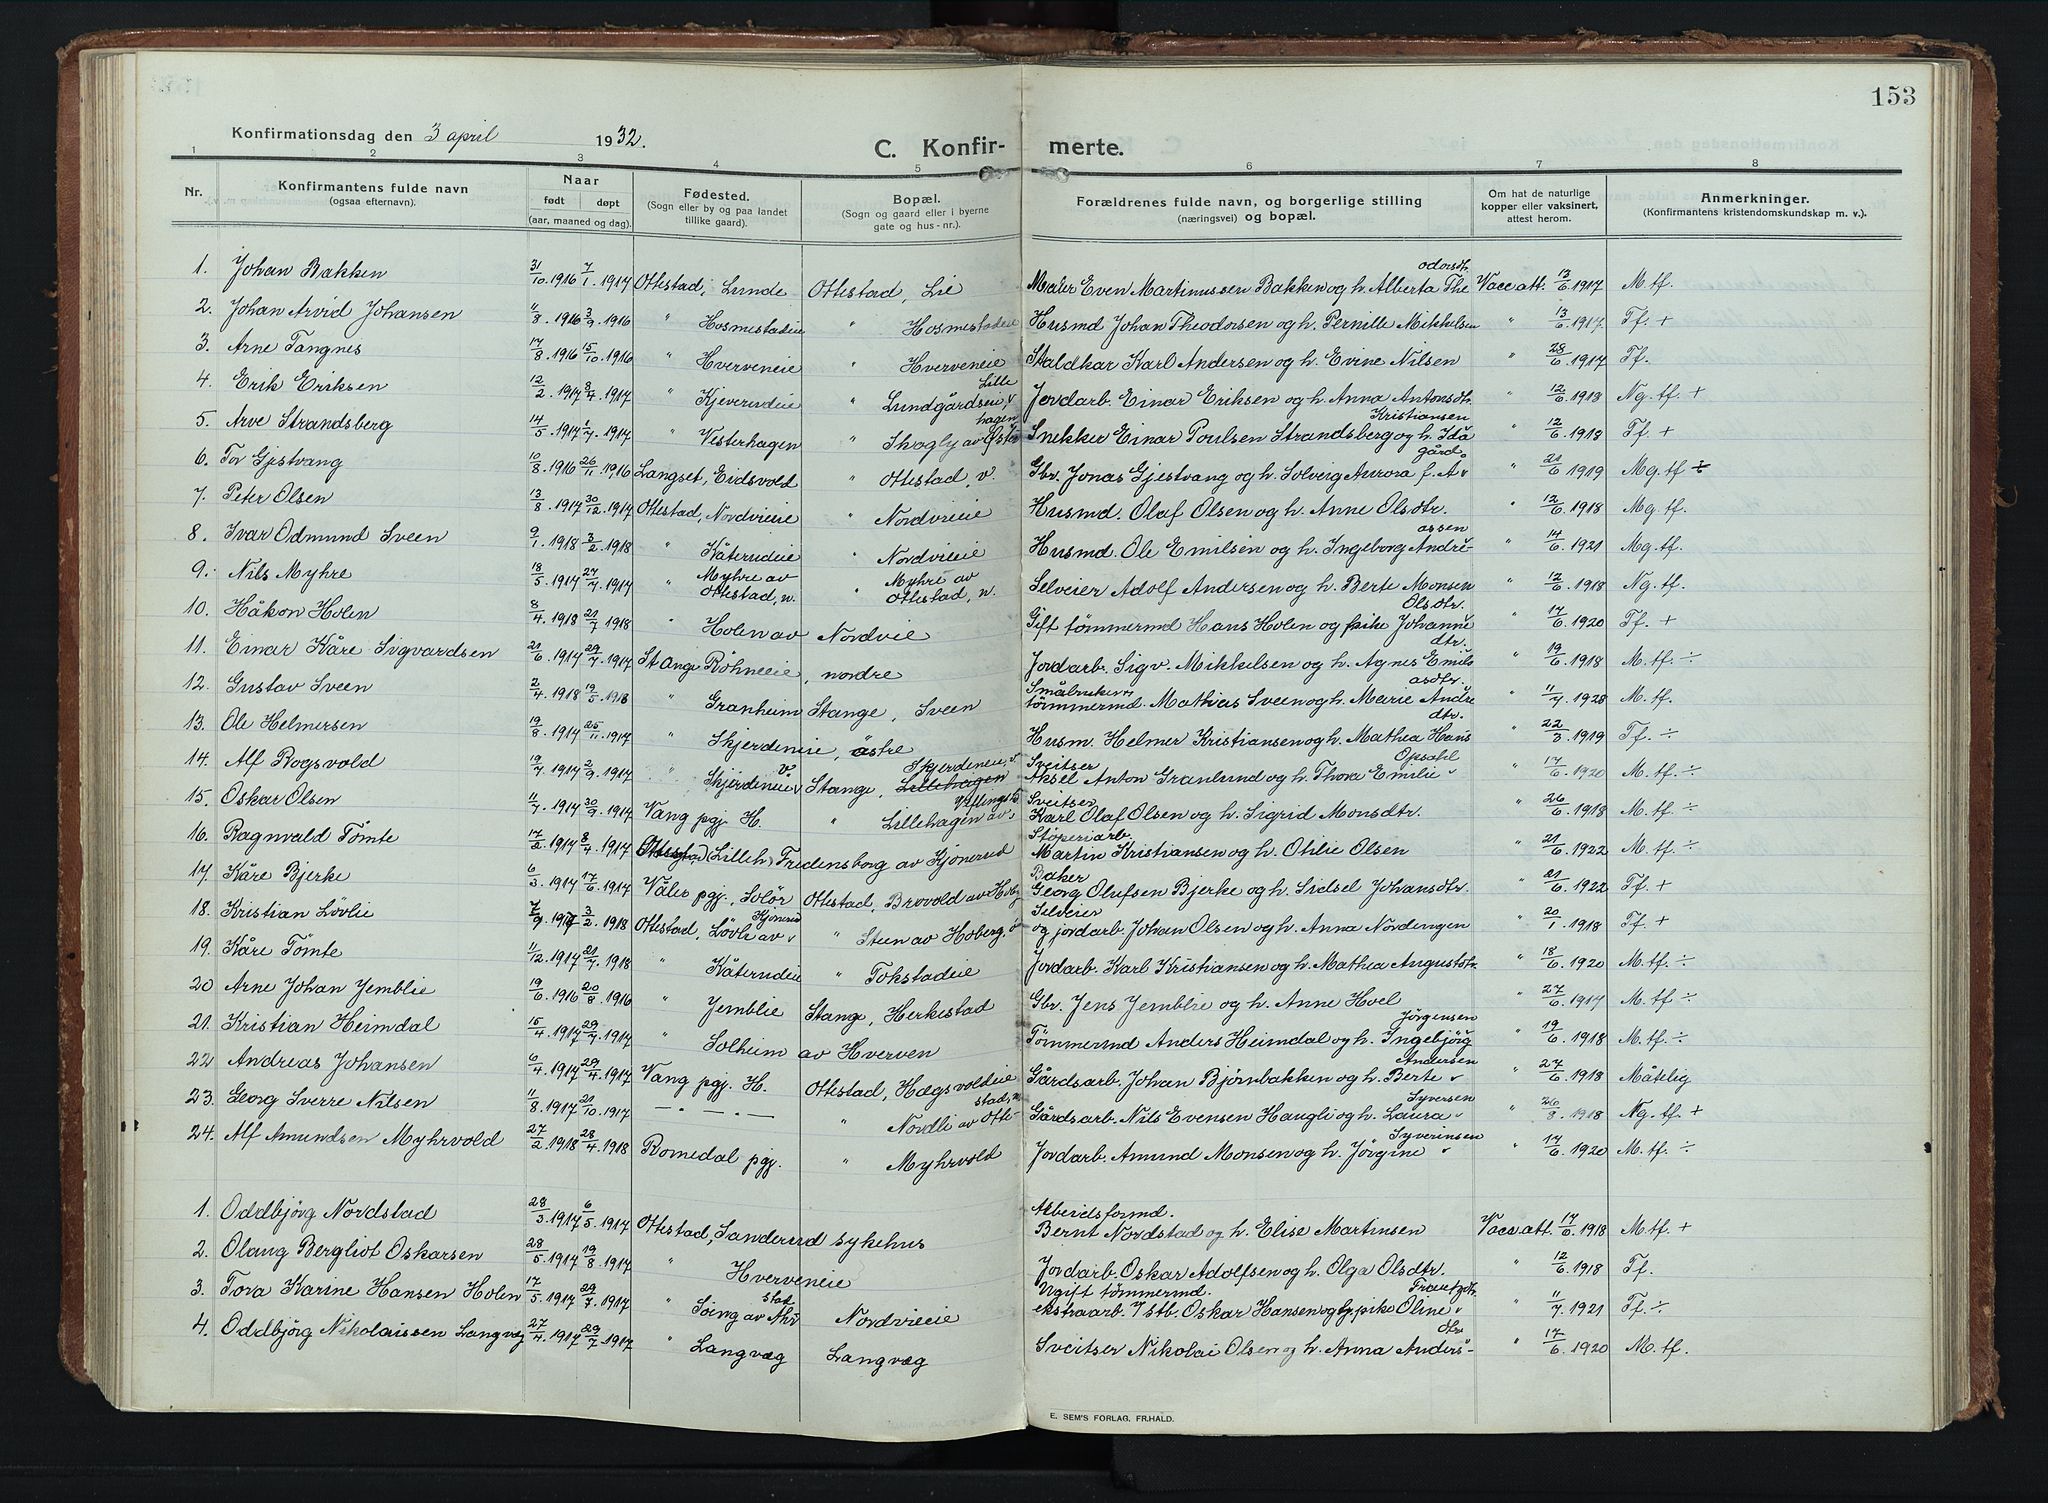 153
Konfirmationsdag den 3 april 1932.
C. Konfir- merte.
1 2 3 4 5 6 7 8
Nr. Konfirmantens fulde navn (ogsaa efternavn). Naar født døpt (aar, maaned og dag). Fødested. (Sogn eller by og paa landet tillike gaard). Bopæl. (Sogn og gaard eller i byerne gate og hus-nr.). Forældrenes fulde navn, og borgerlige stilling (næringsvei) og bopæl. Om hat de naturlige kopper eller vaksinert, attest herom. Anmerkninger. (Konfirmantens kristendomskundskap m. v.).
1. Johan Bakken 31/10.1916 7/1.1917 Ottestad, Lunde Ottestad, Lie Maler Even Martinussen Bakken og h. Alberta Theodorsdtr. Vacc att. 13/6.1917 M.tf.
2. Johan Arvid Johansen 11/8.1916 3/9.1916 " Hosmestadeie " Hosmestadeie Husmd Johan Theodorsen og h. Pernille Mikkelsen " 13/6.1917. Tf. +
3. Arne Tangnes 17/8.1916 15/10.1916 " Hverveneie " Hverveneie Staldkar Karl Andersen og h. Evine Nilsen " 28/6.1917 Tf.
4. Erik Eriksen 12/2.1917 8/4.1917 " Kjeverudeie " Lundgårdseie, Lille Jordarb. Einar Eriksen og h. Anna Antonsdtr. " 12/6.1918 Ng. tf. +
5. Arve Strandsberg 14/5.1917 1/7.1917 " Vesterhagen " Skogly av hagen Snekker Einar Poulsen Strandsberg og h. Ida Kristiansen " 12/6.1918 Tf. +
6. Tor Gjestvang 10/8.1916 26/11.1916 Langset, Eidsvold " Ottestad, v. Gbr. Jonas Gjestvang og h. Solveig Aurora f. Agård " 21/6.1919 Mg. tf ÷
7. Peter Olsen 13/8.1917 30/12.1917 Ottestad, Nordvieie " Nordvieie Husmd. Olaf Olsen og h. Anne Olsdtr. " 12/6.1918 Mg. tf.
8. Ivar Odmund Sveen 9/1.1918 3/2.1918 " Kåterudeie " Nordvieie Husmd. Ole Emilsen og h. Ingeborg Andreassen " 14/6.1921 Mg. tf.
9. Nils Myhre 18/5.1917 27/7.1917 " Myhre av Ottestad, n. " Myhre av Ottestad, n. Selveier Adolf Andersen og h. Berte Monsen " 12/6.1918 Ng. tf.
10. Håkon Holen 8/4.1918 21/7.1918 " Holen av Nordvie Gift tømmermd Hans Holen og pike Johanne Olsdtr. " 17/6.1920 Tf. +
11. Einar Kåre Sigvardsen 21/6.1917 29/7.1917 Stange Røhneeie, nordre Jordarb. Sigv. Mikkelsen og h. Agnes Emilsdtr. " 19/6.1918 M. tf. ÷
12. Gustav Sveen 2/4.1918 19/5.1918 " Granheim Stange, Sveen Småbruker, tømmermd. Mathias Sveen og h. Marie Andreasdtr. " 11/7.1928 M. tf.
13. Ole Helmersen 19/8.1917 25/11.1917 " Skjerdeneie, østre Husm. Helmer Kristiansen og h. Mathea Hansdtr. " 22/3.1919 Tf. ÷
14. Alf Rogsvold 19/7.1917 2/9.1917 " Skjerdeneie v Stange, Lillehagen Skjerdeneie, v. Sveitser Aksel Anton Granlund og h. Thora Emilie Opsahl " 17/6.1920 M. tf. ÷
15. Oskar Olsen 11/7.1917 30/9.1917 Vang pgj. H. " Lillehagen av Sveitser Karl Olaf Olsen og h. Sigrid Monsdtr. " 26/6.1918 M. tf. ÷
16. Ragnvald Tømte 17/2.1917 8/4.1917 Ottestad (Lilleh) Fredensborg av Kjonerud Støperiarb. Martin Kristiansen og h. Otilie Olsen " 21/6.1922 M. tf. ÷
17. Kåre Bjerke 6/3.1917 17/6.1917 Våler pgj., Solør Ottestad, Brovold av Hobg Baker Georg Olufsen Bjerke og h. Sidsel Johansdtr. " 21/6.1922 Tf. +
18. Kristian Løvlie 7/9.1917 3/2.1918 Ottestad, Løvli av Kjonerud " Steen av Hoberg, ø Selveier og jordarb. Johan Olsen og h. Anna Nordengen " 20/1.1918 Tf. +
19. Kåre Tømte 11/12.1917 21/7.1918 " Kåterudeie " Tokstadeie Jordarb. Karl Kristiansen og h. Mathea Augustdtr. " 18/6.1920 M. tf. ÷
20 Arne Johan Jemblie 19/6.1916 20/8.1916 " Jemblie Stange, Herkestad Gbr. Jens Jemblie og h. Anne Hvel " 27/6.1917 M. tf. ÷
21. Kristian Heimdal 15/4.1917 29/7.1917 " Solheim av Hverven Tømmermd Anders Heimdal og h. Ingebjørg Jørgensen " 19/6.1918 M. tf. ÷
22 Andreas Johansen 6/4.1917 29/4.1917 Vang pgj. H. Ottestad, Hægsvoldeie Gårdsarb. Johan Bjørnbakken og h. Berte Andersen " 27/6.1918 Måtelig
23. Georg Sverre Nilsen 11/8.1917 21/10.1917 — " — " — " Nordli av Ottestad, n Gårdsarb. Nils Evensen Haugli og h. Laura Syversen " 26/8.1918 Ng. tf. +
24. Alf Amundsen Myhrvold 27/2.1918 28/4.1918 Romedal pgj. " Myhrvold Jordarb. Amund Monsen og h. Jørgine Syverinsen " 17/6.1920 M. tf. ÷
1. Oddbjørg Nordstad 28/3.1917 6/5.1917 Ottestad, Sanderud sykehus Arbeidsformd. Bernt Nordstad og h. Elise Martinsen Vacc att. 17/6.1918 M. tf. +
2. Olaug Bergliot Oskarsen 28/5.1917 19/8.1917 " Hverveneie Jordarb. Oskar Adolfsen og h. Olga Olsdtr. " 12/6.1918 Tf.
3. Tova Karine Hansen Holen 17/5.1917 29/7.1917 " Soeng av Nordvieie Ugift tømmermd. ekstraarb. v Jstb. Oskar Hansen og pike Oline " 11/7.1921 Tf. ÷
4. Oddbjørg Nikolaissen Langvæg 27/4.1917 29/7.1917 " Langvæg Langvæg Sveitser Nikolai Olsen og h. Anna Andersdtr " 17/6.1920 M. tf.
E. SEM'S FORLAG, FR.HALD.